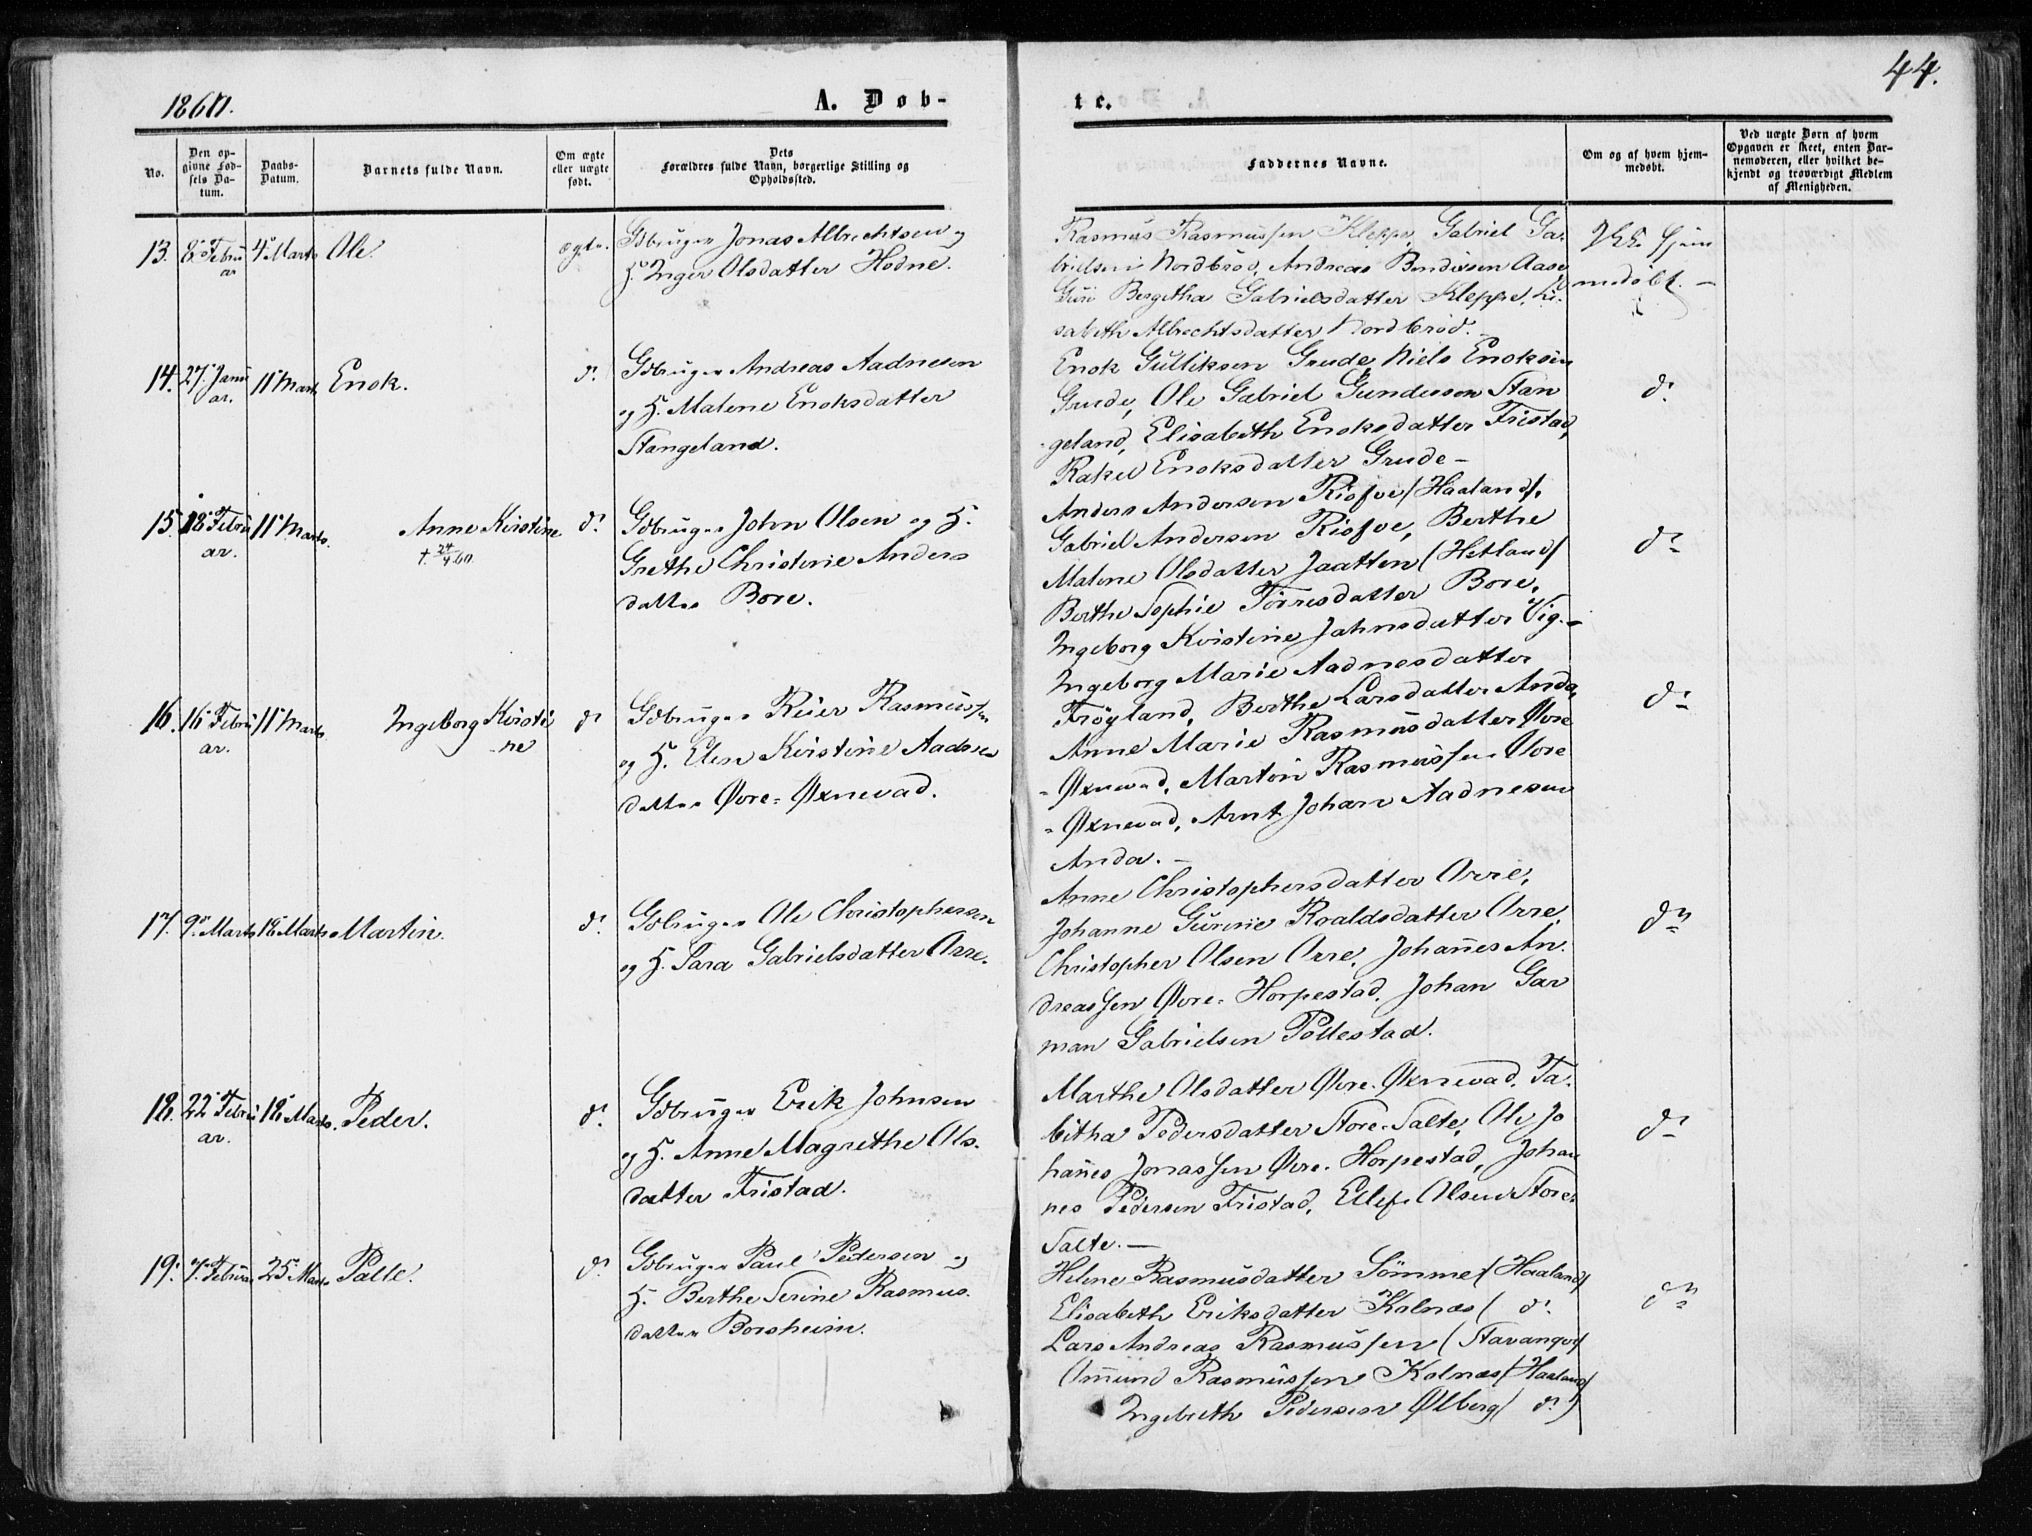 44.
1860.
A. Døb-
te.
No.
Den opgivne Fødsels Datum.
Daabs-Datum.
Barnets fulde Navn.
Om ægte eller uægte født.
Dets Forældres fulde Navn, borgerlige Stilling og Opholdssted.
Faddernes Navne.
Om og af hvem hjemmedøbt.
Ved uægte Børn af hvem Opgaven er skeet, enten Barnemoderen, eller hvilket bekjendt og troværdigt Medlem af Menigheden.
13. 8de Febru
ar
4 Marts Ole. ægte.
Gbruger Jonas Albrechtsen og
H. Inger Olsdatter Hodne.
Rasmus Rasmussen Kleppe, Gabriel Ga-
brielsen Nordbrød, Andreas Bendixsen Aase,
Guri Bergitha Gabrielsdatter Kleppe, Li-
sabeth Albrechtsdatter Nordbrød.
Ikke hjem
medøbt.
14. 27. Janu
ar.
11 Marts Enok. do
Gdbruger Andreas Aadnesen
og H. Malene Enoksdatter
Stangeland.
Enok Gulliksen Grude, Niels Enoksen
Grude, Ole Gabriel Gundersen Stan
geland, Elisabeth Enoksdatter Fristad,
Rakel Enoksdatter Grude-
do
15. 18 Febru
ar.
11 Marts. Anne Kirstine
† 24/4 60.
do
Gdbruger John Olsen og H.
Grethe Christine Anders
datter Bore.
Anders Andersen Risfoe (Haaland),
Gabriel Andersen Risfoe, Berthe
Malene Olsdatter Jaatten (Hetland)
Berthe Sophie Tørresdatter Bore,
Ingeborg Kristine Jahnsdatter Vig.-
do
16. 16 Febru
ar.
11 Marts Ingeborg Kirsti
-ne
do
Gdbruger Reier Rasmussen
og H. Elen Kirstine Aadnes
datter Øvre-Øxnevad.
Ingeborg Marie Aadnesdatter
Frøyland, Berthe Larsdatter Anda,
Anne Marie Rasmusdatter Øvre
-Øxnevad, Martin Rasmussen Øvre
-Øxnevad, Arnt Johan Aadnesen
Anda.-
do
17. 9 Marts 18 Marts Martin. do
Gdbruger Ole Christophersen
og H. Sara Gabrielsdatter Orre.
Anne Christophersdatter Orre,
Johanne Gurine Roaldsdatter Orre,
Christopher Olsen Orre, Johannes An-
dreassen Øvre-Horpestad, Johan Gar
man Gabrielsen Pollestad.
do
18. 22 Febru
ar.
18 Marts. Peder. do
Gdbruger Erik Johnsen
og H. Anne Magrethe Ols-
datter Fristad.
Marthe Olsdatter Øvre-Øxnevad, Ta-
bitha Pedersdatter Store-Salte, Ole Jo
hannes Jonassen Øvre-Horpestad, Johan
nes Pedersen Fristad, Ellef Olsen Store-
Salte.-
do
19. 7 Februar 25 Marts Palle. do
Gbruger Paul Pedersen og
H. Berthe Serine Rasmus-
datter Borsheim.
Helene Rasmusdatter Sømme (Haaland)
Elisabeth Eriksdatter Kolnæs ( do.
Lars Andreas Rasmussen (Stavanger)
Omund Rasmussen Kolnæs (Haaland)
Ingebreth Pedersen Ølberg ( do)
do